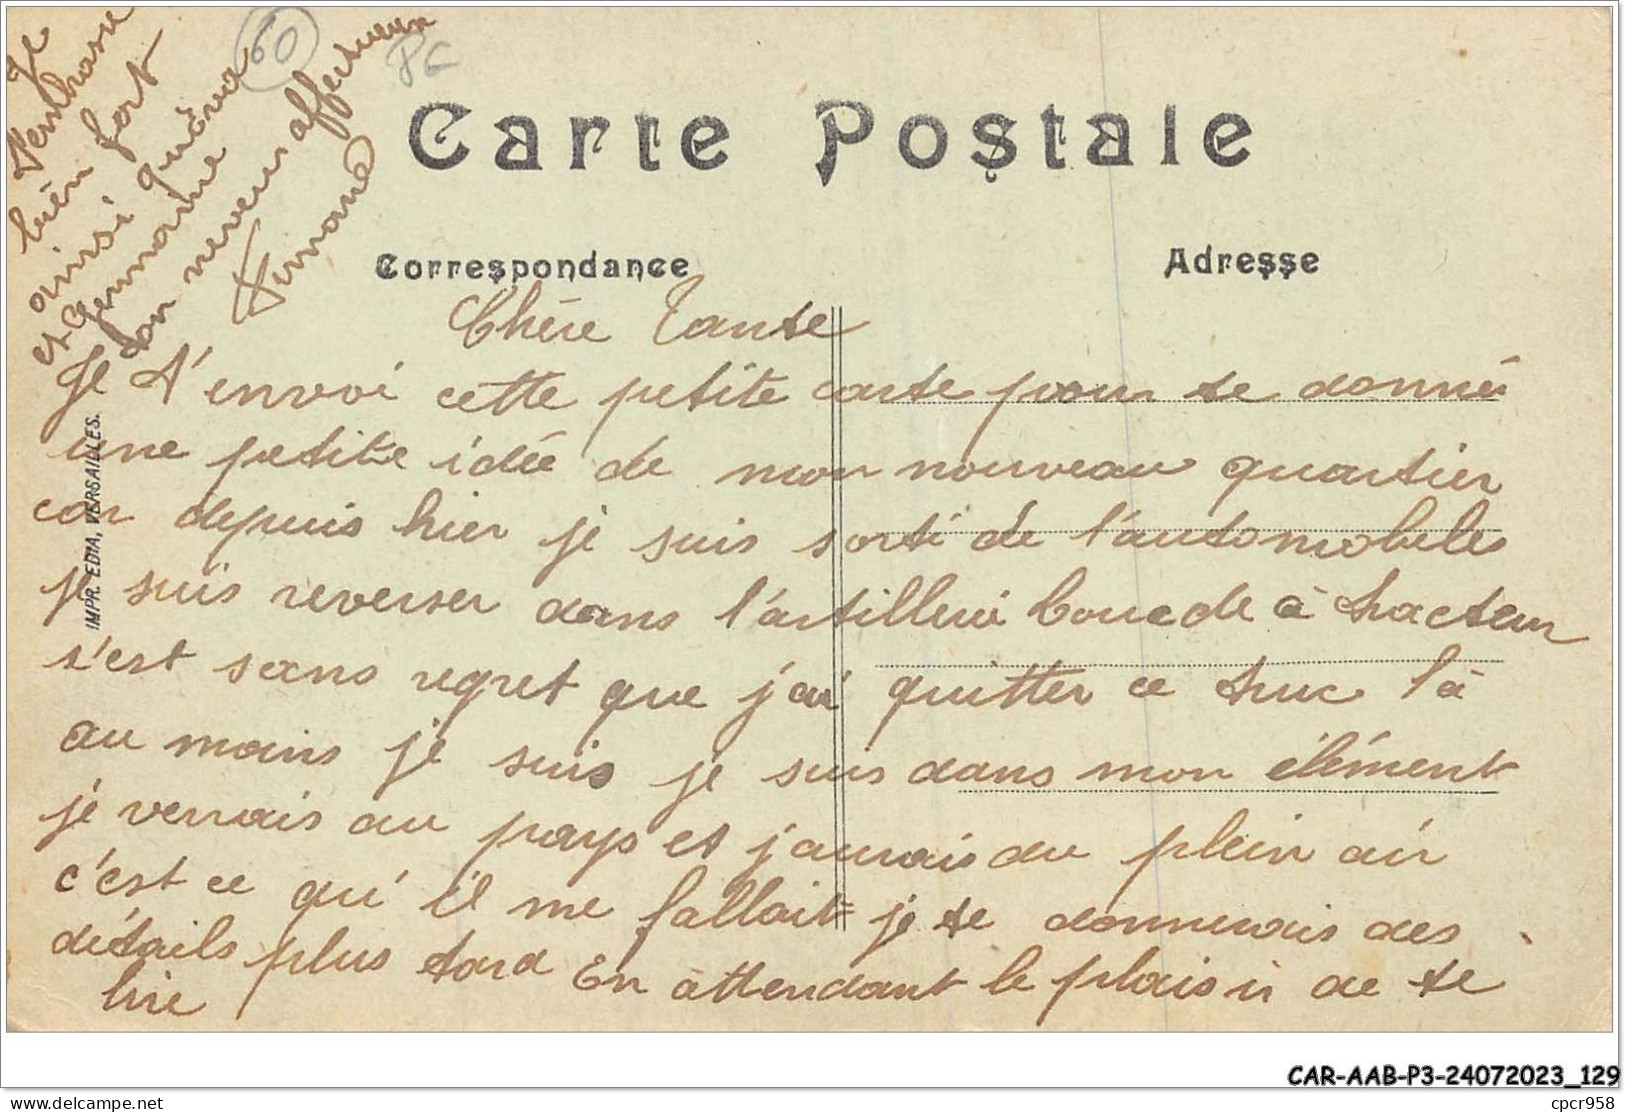 60
PC
Carte Postale
Correspondance
Adresse
Chère Tante
Je t'envoi cette petite carte pour te donné
une petite idée de mon nouveau quartier
car depuis hier je suis sorti de l'automobiles
je suis reverser dans l'artillerie lourde à tracteur
s'est sans regret que j'ai quitter ce truc là
au moins je suis je suis dans mon élément
je verrais au pays et j'aurais du plein air
c'est ce qu'il me fallait je te donnerais des
détails plus tard En attendant le plaisir de te
lire
Je
t'embrasse
bien fort
ainsi
et Germaine
ton neveu affectueux
Fernand
IMPR. EDIA, VERSAILLES.
CAR-AAB-P3-24072023_129
delcampe.net
cpcr958